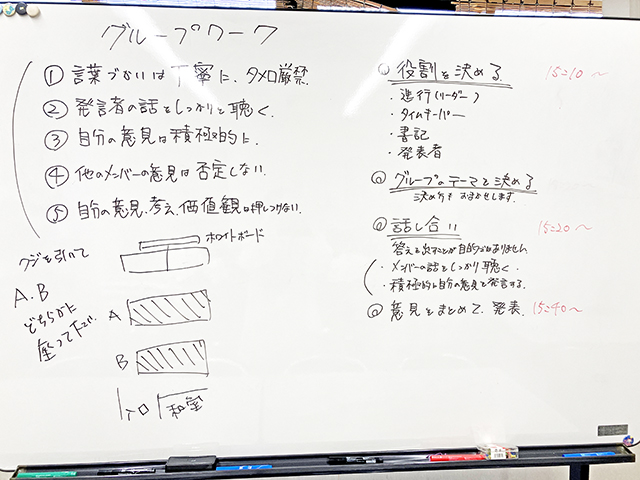 グループワーク
① 言葉づかいは丁寧に、タメ口厳禁
② 発言者の話をしっかりと聴く.
③ 自分の意見は積極的に.
④ 他のメンバーの意見は否定しない.
⑤ 自分の意見、考え、価値観は押しつけない.
ホワイトボード
クジを引いて
A.B
どちらかに
座って下さい
A
B
入口
和室
◎ 役割を決める 15:10〜
・進行(リーダー)
・タイムキーパー
・書記
・発表者
◎ グループのテーマを決める
決め方も おまかせします.
◎ 話し合い 15:20〜
答えを出すことが目的ではありません
・メンバーの話をしっかり聴く.
・積極的に自分の意見を発言する.
◎ 意見をまとめて、発表. 15:40〜